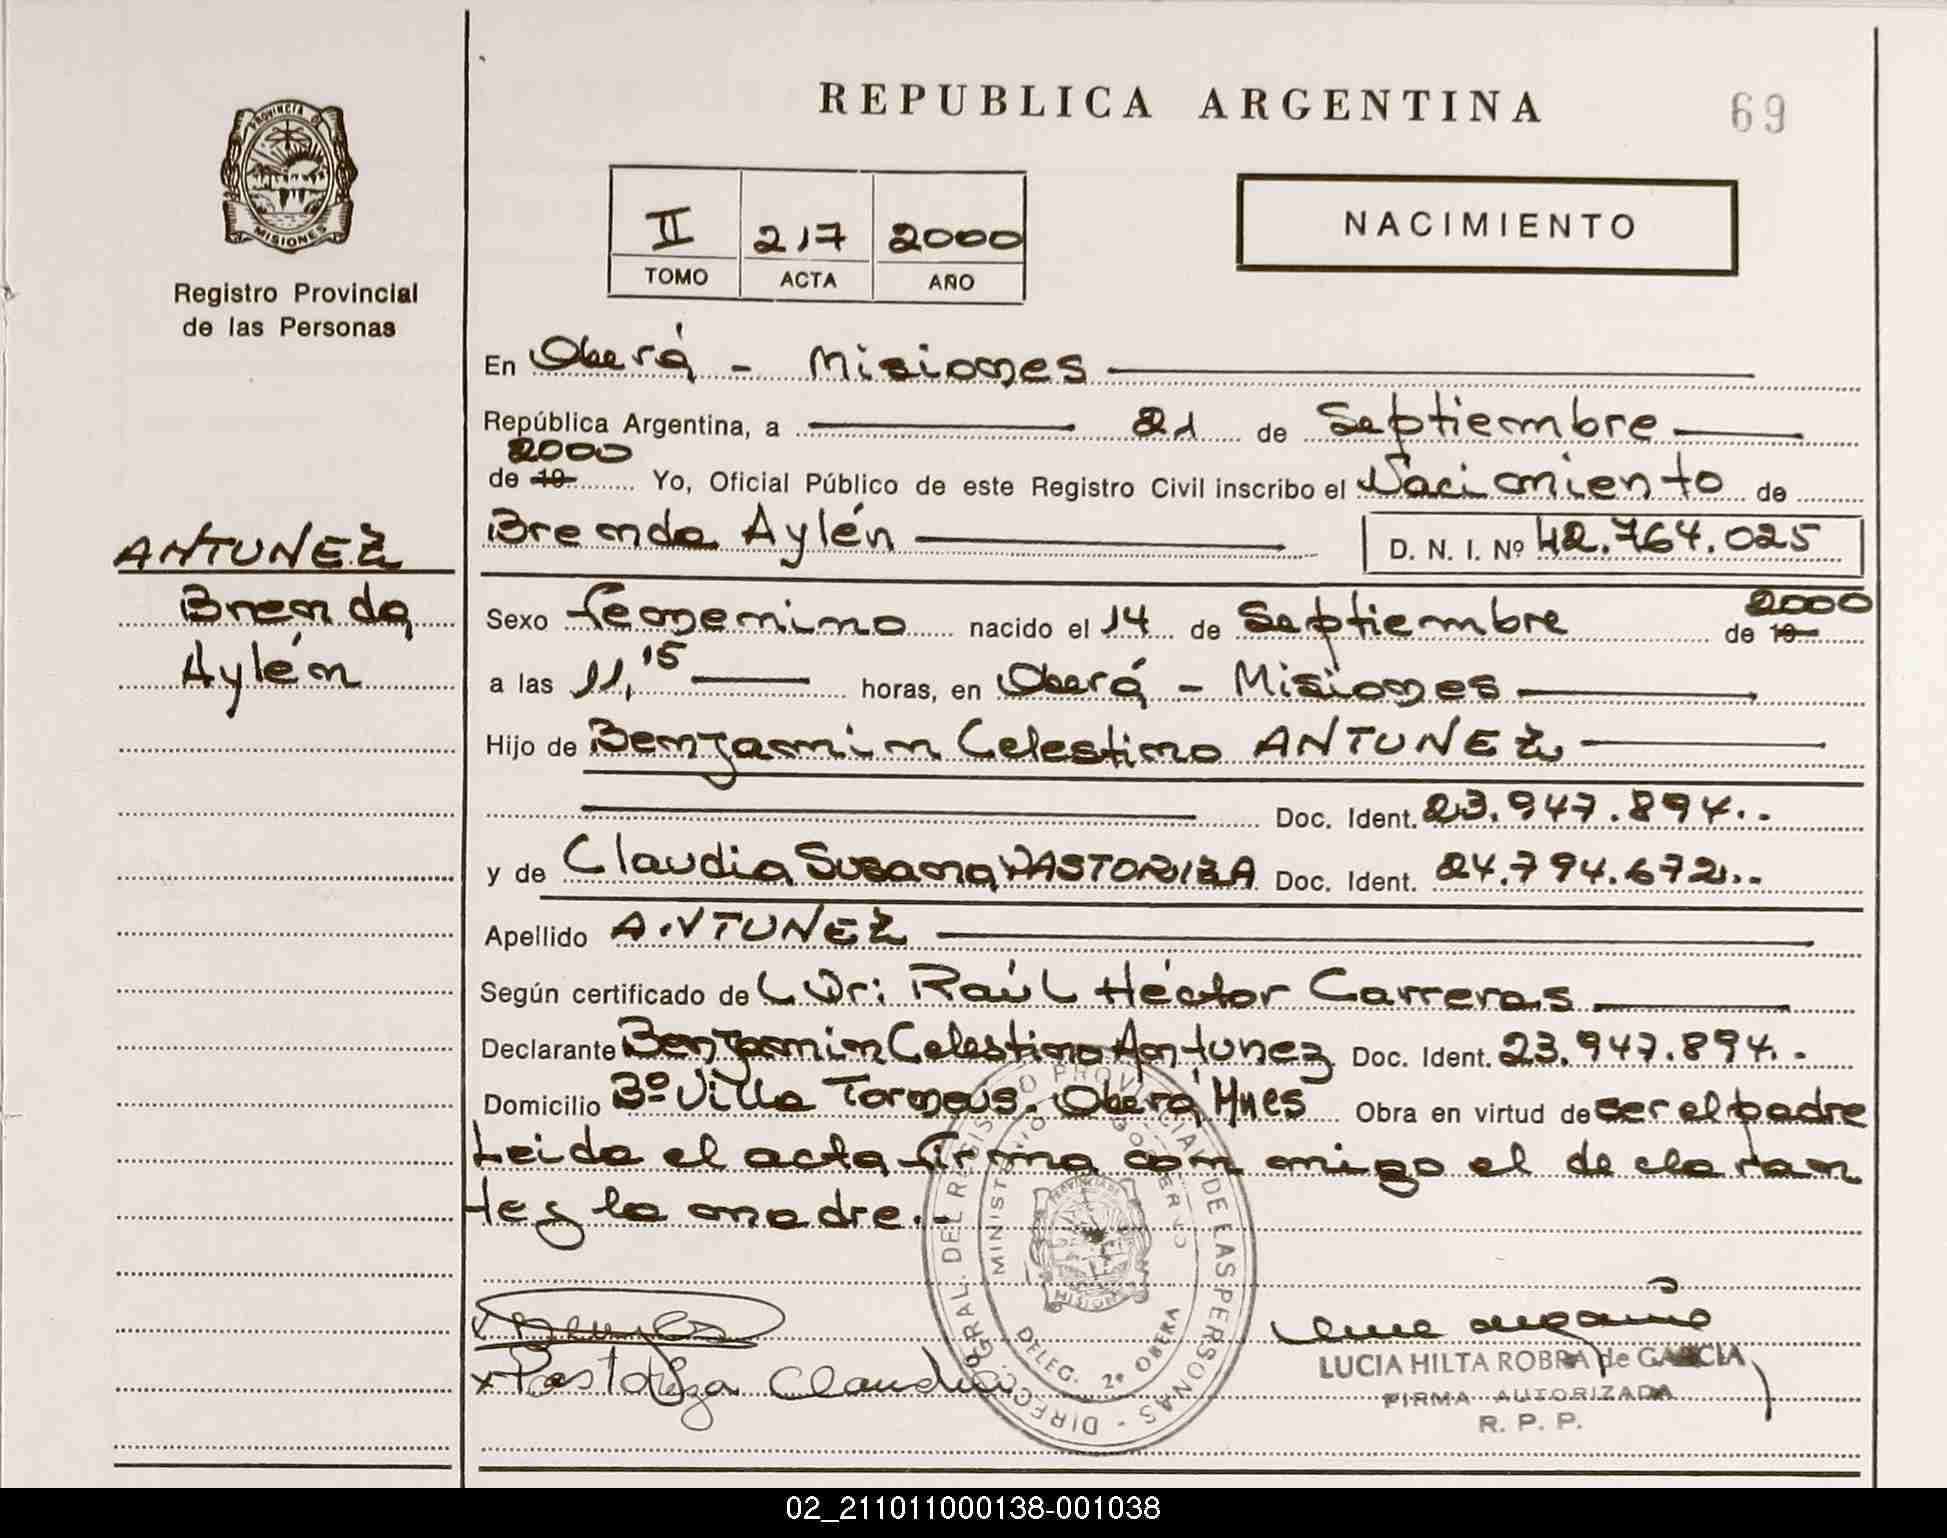 REPUBLICA ARGENTINA
69
PROVINCIA D
MISIONES
Registro Provincial
de las Personas
II 217 2000
TOMO ACTA AÑO
NACIMIENTO
En Oberá - Misiones
República Argentina, a 21 de Septiembre
2000
de 19 Yo, Oficial Público de este Registro Civil inscribo el Nacimiento de
Brenda Aylén D. N. I. Nº 42.764.025
ANTUNEZ
Brenda
Aylén
Sexo femenino nacido el 14 de Septiembre de 19 2000
a las 11,15 horas, en Oberá - Misiones
Hijo de Benjamin Celestino ANTUNEZ
Doc. Ident. 23.947.894.-
y de Claudia Susana PASTORIZA Doc. Ident. 24.794.672.-
Apellido ANTUNEZ
Según certificado de Dr: Raúl Héctor Carreras
Declarante Benjamin Celestino Antunez Doc. Ident. 23.947.894.-
Domicilio Bº Villa Oberá Mnes Obra en virtud de ser el padre
Leida el acta firma con migo el declaran
te y la madre.-
DIREC. GRAL. DEL REGISTRO PROVINCIAL DE LAS PERSONAS
MINISTERIO GOBIERNO
MISIONES
DELEG. 2º OBERA
x
x Pastoriza Claudia
LUCIA HILTA ROBRA de GARCIA
FIRMA AUTORIZADA
R. P. P.
02_211011000138-001038